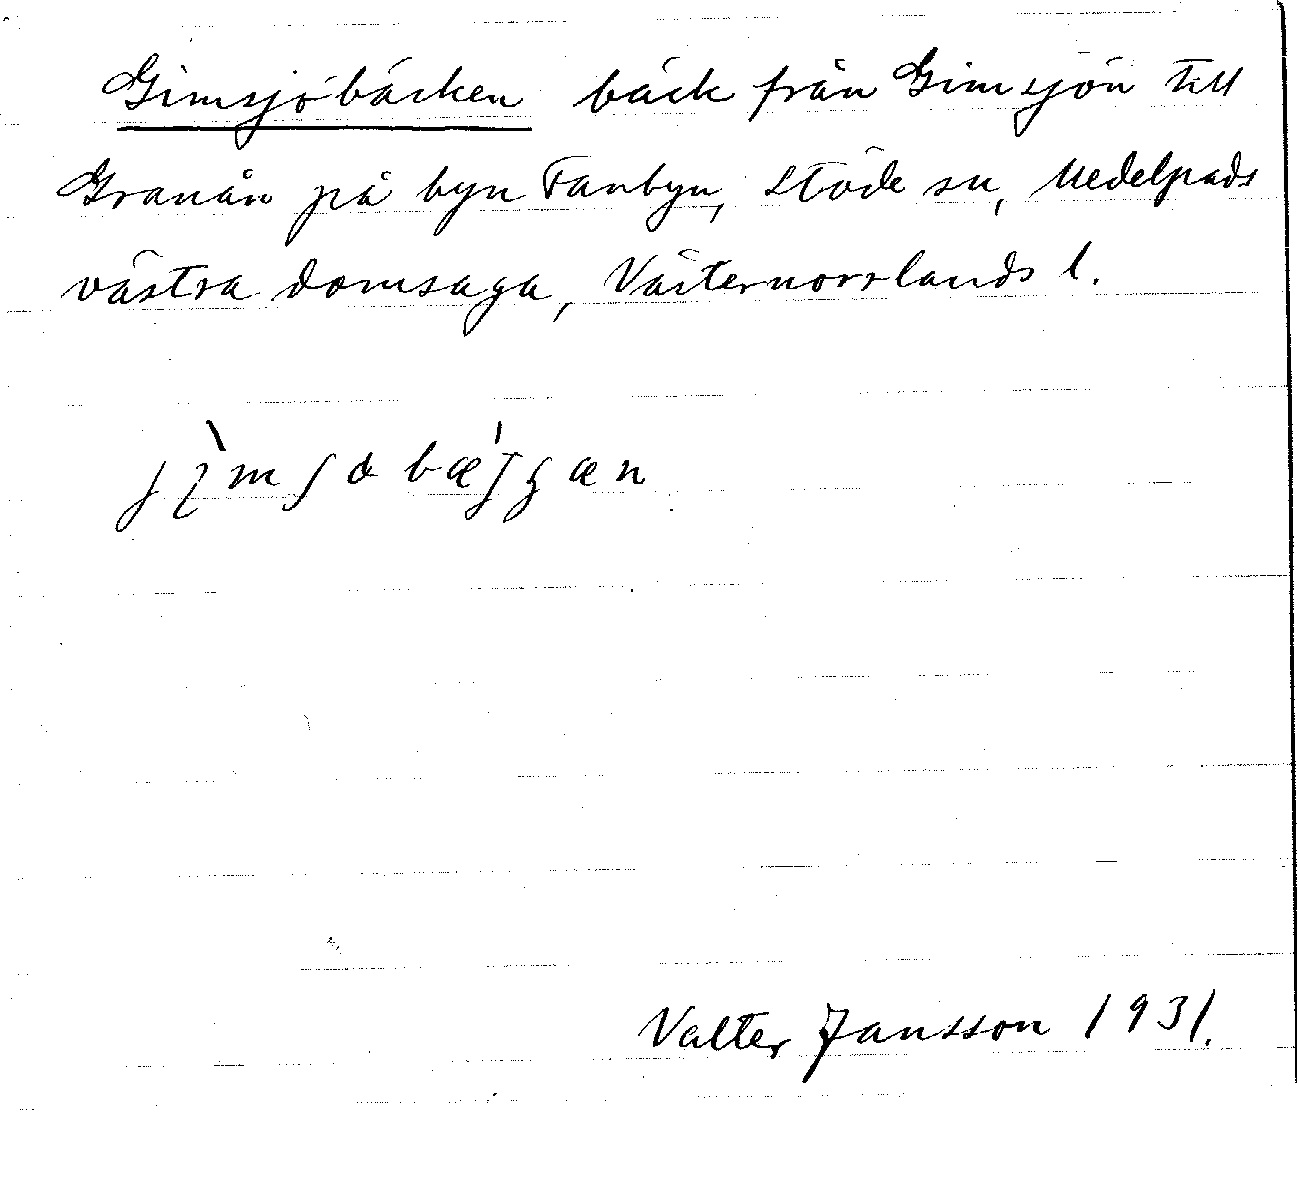 Gimsjöbäcken bäck från Gimsjön till
Granån på byn Fanbyn, Stöde sn, Medelpads
västra domsaga, Västernorrlands l.
Valter Jansson 1931.